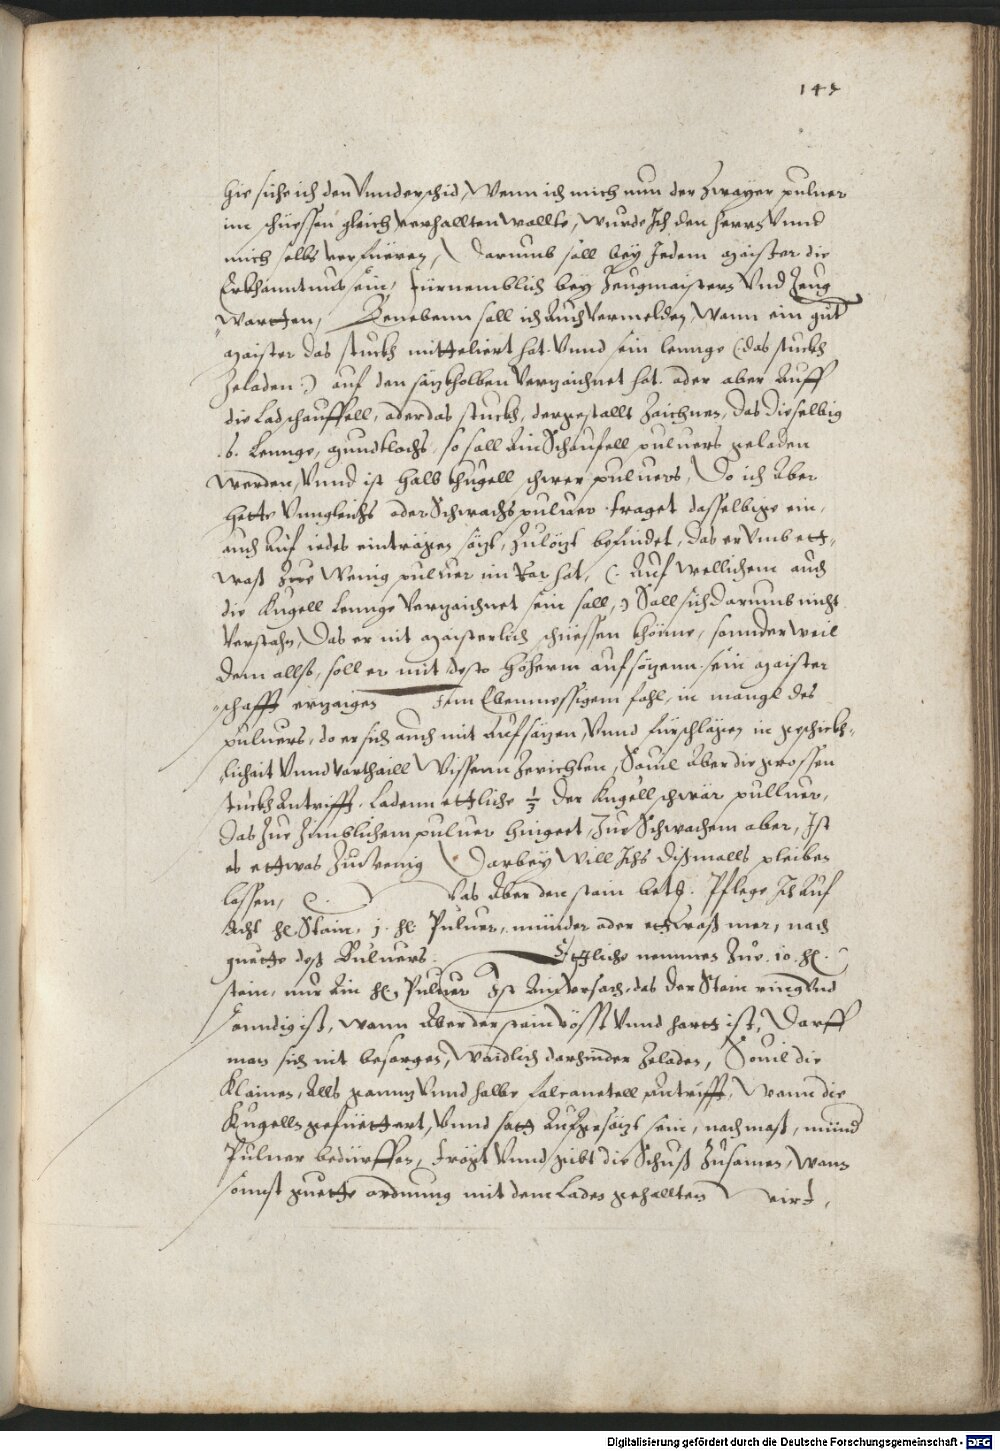 145
hie siche ich den Vnnderschid, Wenn ich mich nun der Zwayer puluer
im schiessen gleich verhallten wollte, wurde Ich den herrn Vnnd
mich selbs verfüeren, Darumb soll bey Jedem maister die
Erkhanntnus sein, fürnemblich bey Zeugmaistern Vnd Zeug
wartten, Benebenn soll ich Auch Vermelden, Wann ein gůt
maister das stuckh mitteliert hat Vnnd sein lennge (: das stuckh
Zeladen :) auf den sazkholben Verzaichnet hat. oder aber Auff
die Ladschauffell, oder das stuckh, dergestallt Zaichnen, das dieselbig
.6. Lennge, mundtlochs, so soll Ain Schaufell puluers geladen
werden, Vnnd ist halb khugell schwer puluers, Do ich Aber
hette Vnngleichs oder Schwachs puluer traget dasselbige ein,
auch Auf iedes eintragen sözt, Zulözt befindet, das er Vmb ett,,
waß Zue Wenig puluer im Ror hat, (: Auf wellichem auch
die Kugell Lennge Verzaichnet sein soll, :) Soll sich darumb nicht
Verstehn, Das er nit maisterlich schiessen khönne, sonnder weil
dem allso, soll er mit desto höherm aufsözenn sein maister
,,schafft erzaigen Jem Ebenmessigem fahl, in mangl des
puluers, do er sich auch mit Aufsözen, Vnnd fürschlägen in geschickh,,
,,lichait Vnnd Vorthaill Wissenn Zerichten, Souil Aber die grossen
stuckh Antrifft. Ladenn ettliche ½ der Kugell schwär pulluer,
das Zue Zimblichem puluer hingeet, Zue Schwachem aber, Ist
es ettwas Zu Wenig Darbey Will Ichs dißmalls pleiben
lassen, Was Aber den stain betr. Pflege Ich Auf
Acht ℔. Stain, 1. ℔ Puluer, minder oder ettwaß mer, nach
guette deß Puluers. Ettliche nemmen Zue .10. ℔.
stein, nur Ain ℔, Puluer Ist Ain Vrsach, das der Stain ring Vnd
sanndig ist, wann Aber der stain vösst Vnnd hartt ist, Darff
man sich nit besorgen, Waidlich darhinder Zeladen, Souil die
Klainen, Alls ganntz Vnnd halbe Falconetell Antrifft, Wann die
Kugelln gefüettert, Vnnd satt Aufgesözt sein, nach maß, mind
Puluer bedürffen, tregt Vnnd gibt die Schuß Zusamen, Wann
sonnst guette ordnung mit dem Laden gehallten wirt,
Digitalisierung gefördert durch die Deutsche Forschungsgemeinschaft - DFG